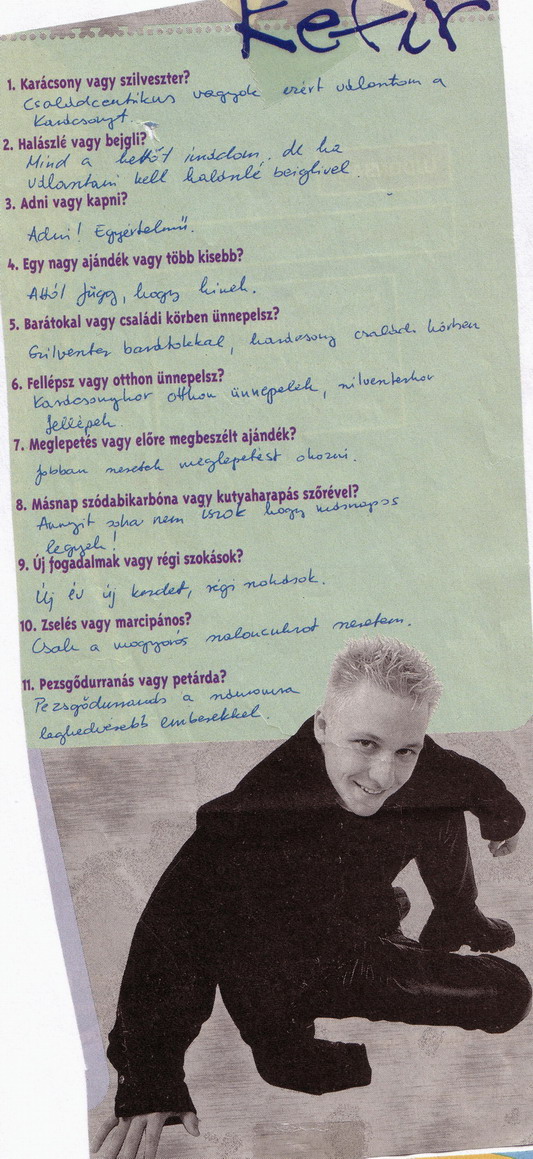 Kefir
1. Karácsony vagy szilveszter?
Családcentrikus vagyok ezért választom a
Karácsonyt.
2. Halászlé vagy bejgli?
Mind a kettőt imádom, de ha
választani kell halászlé bejglivel.
3. Adni vagy kapni?
Adni! Egyértelmű.
4. Egy nagy ajándék vagy több kisebb?
Attól függ, hogy kinek.
5. Barátokal vagy családi körben ünnepelsz?
Szilveszter barátokkal, karácsony családi körben
6. Fellépsz vagy otthon ünnepelsz?
Karácsonykor otthon ünnepelek, szilveszterkor
fellépek.
7. Meglepetés vagy előre megbeszélt ajándék?
Jobban szeretek meglepetést okozni.
8. Másnap szódabikarbóna vagy kutyaharapás szőrével?
Annyit soha nem iszok hogy másnapos
legyek!
9. Új fogadalmak vagy régi szokások?
Új év új kezdet, régi szokások.
10. Zselés vagy marcipános?
Csak a mogyorós szaloncukrot szeretem.
11. Pezsgődurranás vagy petárda?
Pezsgődurranás a számomra
legkedvesebb emberekkel.